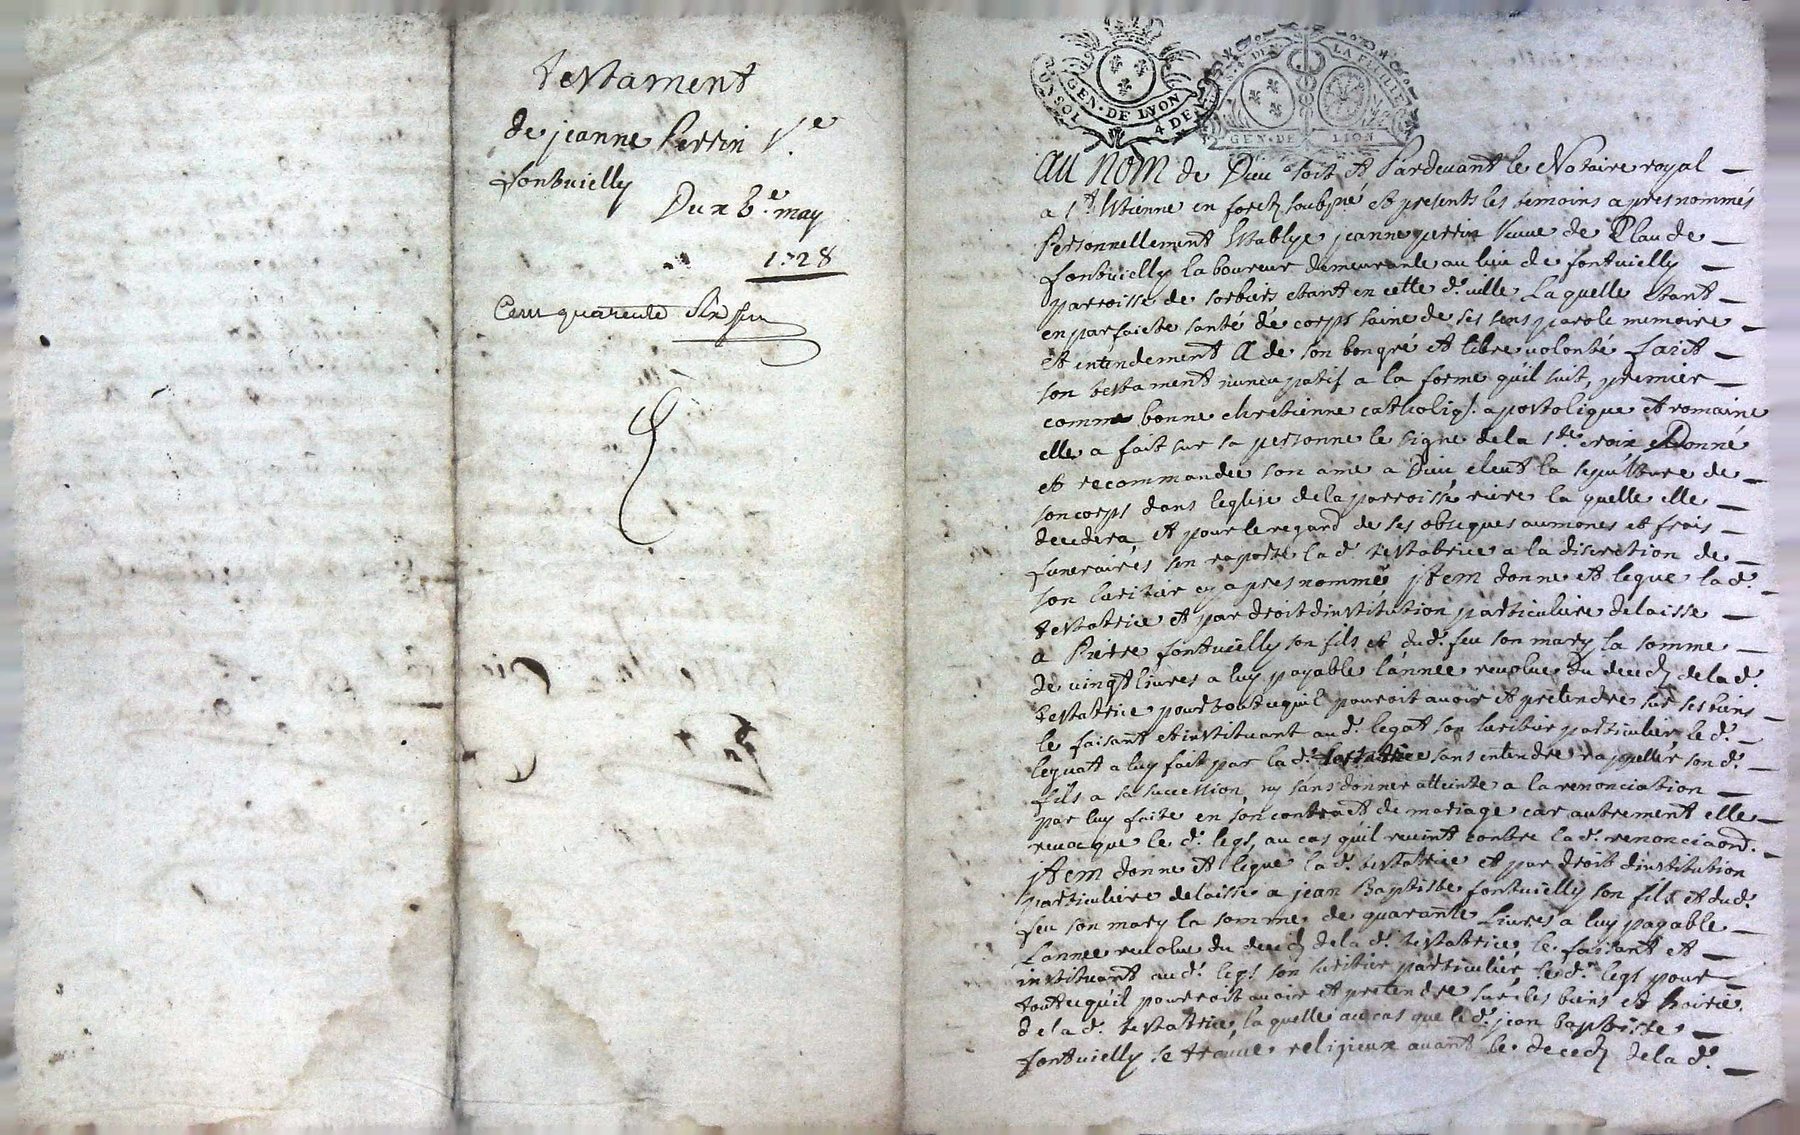 testament
de jeanne Perrin Ve
fontvielly
Du 28e may
1728
Cent quarente Six
1 SOL
GEN. DE LYON
4 DE
LA FEUILLE
GEN. DE LION
AU NOM de Dieu soit et Pardevant le Notaire royal
a St Etienne en forez soubsné et presents les temoins apres nommés
Personnellement Etablye jeanne perrin veuve de Claude
fontvielly laboureur demeurante au lieu de fontvielly
parroisse de sorbiers etant en cette de ville Laquelle etant
en parfaicte santé de corps saine de ses sens parole memoire
et entendement A de son bon gré et libre volonté fait
son testament nuncupatif a la forme qu'il suit, premier
comme bonne chretienne catholiq. apostolique et romaine
elle a fait sur sa personne le signe de la Ste croix Donné
et recommandée son ame a Dieu eleut la sepulture de
son corps dans leglise de la parroisse riere la quelle elle
decedera et pour le regard de ses obseques aumones et frais
funeraires sen raporte la d. testatrice a la discretion de
son heritier cy apres nommé jtem donne et legue la d.
testatrice et par droit d'institution particuliere delaisse
a Pierre fontvielly son fils et dud. feu son mary la somme
de vingt livres a luy payable l'année revolue du decedz de la d.
testatrice pour tout ce qu'il pourroit avoir et pretendre sur ses biens
le faisant et instituant aud. legat son heritier particulier le d.
leguat a luy fait par la d. testatrice sans entendre rappeller son d.
fils a sa succession, ny sans donner atteinte a la renonciation
par luy faite en son contract de mariage car autrement elle
revocque le d. legs, au cas qu'il revint contre la d. renonciaon.
jtem donne et legue la d. testatrice et par droit d'institution
particuliere delaisse a jean Baptiste fontvielly son fils et dud.
feu son mary la somme de quarante Livres a luy payable
Lannee revolue du decedz de la d. testatrice, le faisant et
instituant aud. legs son heritier particulier le d. legs pour
tout ce qu'il pourroit avoir et pretendre sur les biens et hoirie
de la d. testatrice, la quelle au cas que le d. jean baptiste
fontvielly se trouve religieux avant le decedz de la d.